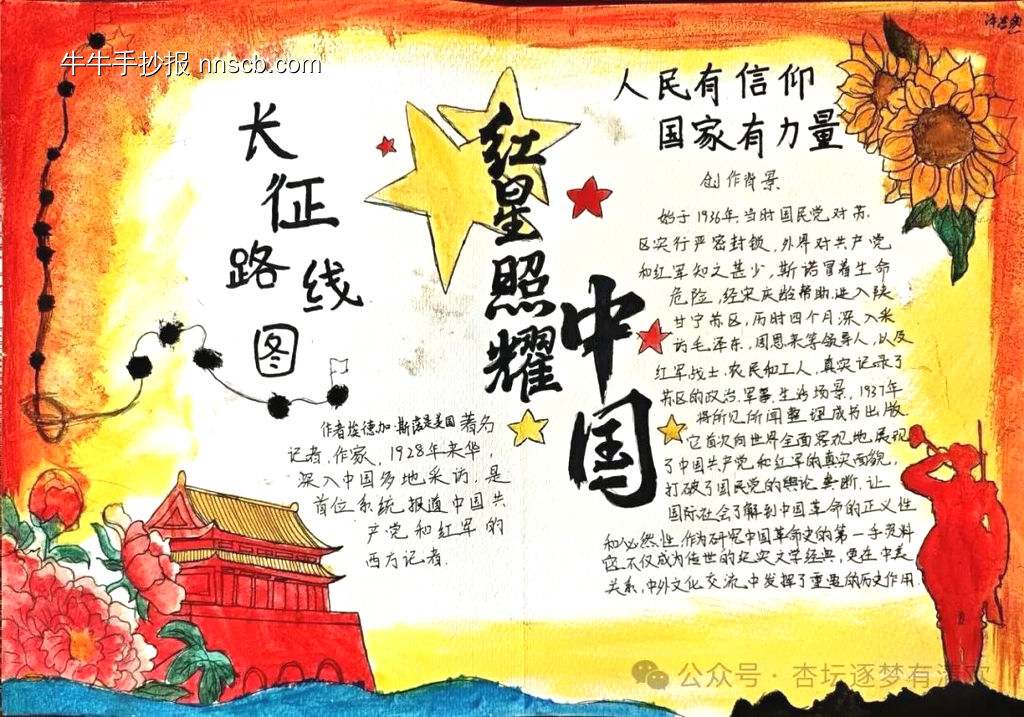 牛牛手抄报 nnscb.com
长征
路线
图
红星照耀
中国
人民有信仰
国家有力量
创作背景
始于1936年,当时国民党对苏
区实行严密封锁,外界对共产党
和红军知之甚少,斯诺冒着生命
危险,经宋庆龄帮助,进入陕
甘宁苏区,历时四个月深入采
访毛泽东,周恩来等领导人,以及
红军战士.农民和工人,真实记录了
苏区的政治.军事.生活场景,1937年
将所见所闻整理成书出版.
它首次向世界全面客观地展现
了中国共产党和红军的真实面貌,
打破了国民党的舆论垄断.让
国际社会了解到中国革命的正义性
和必然性,作为研究中国革命史的第一手资料
它不仅成为传世的纪实文学经典,更在中美
关系,中外文化交流中发挥了重要的历史作用.
作者埃德加·斯诺是美国著名
记者,作家,1928年来华,
深入中国多地采访,是
首位系统报道中国共
产党和红军的
西方记者.
公众号·杏坛逐梦有清欢